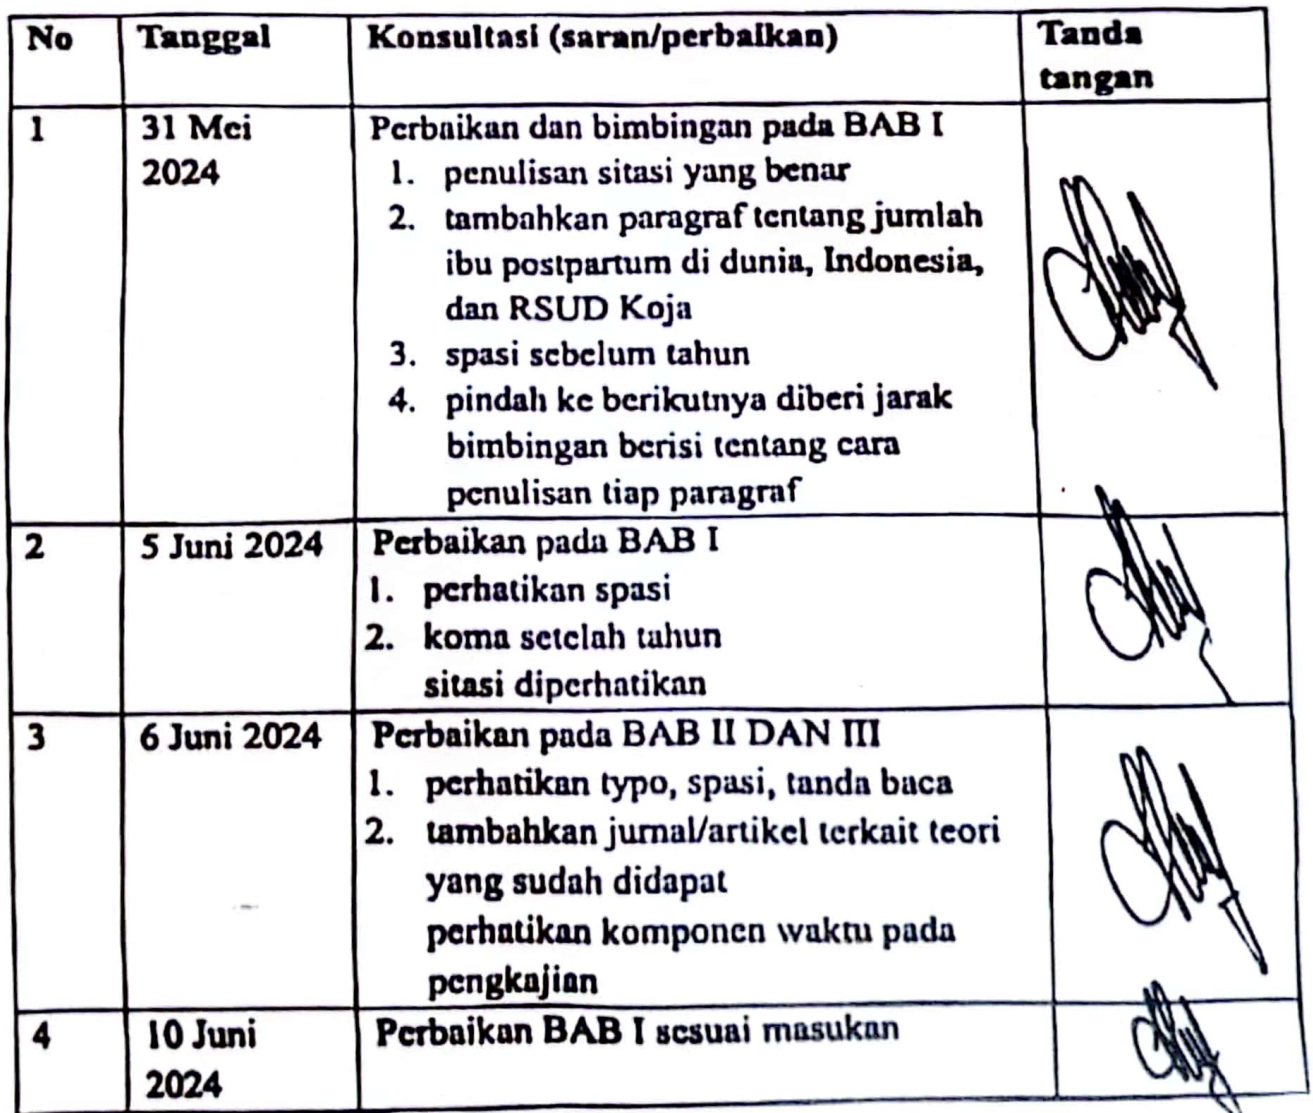 No Tanggal Konsultasi (saran/perbaikan) Tanda
tangan
1 31 Mei Perbaikan dan bimbingan pada BAB I
2024 1. penulisan sitasi yang benar
2. tambahkan paragraf tentang jumlah
ibu postpartum di dunia, Indonesia,
dan RSUD Koja
3. spasi sebelum tahun
4. pindah ke berikutnya diberi jarak
bimbingan berisi tentang cara
penulisan tiap paragraf
2 5 Juni 2024 Perbaikan pada BAB I
1. perhatikan spasi
2. koma setelah tahun
sitasi diperhatikan
3 6 Juni 2024 Perbaikan pada BAB II DAN III
1. perhatikan typo, spasi, tanda baca
2. tambahkan jurnal/artikel terkait teori
yang sudah didapat
perhatikan komponen waktu pada
pengkajian
4 10 Juni Perbaikan BAB I sesuai masukan
2024